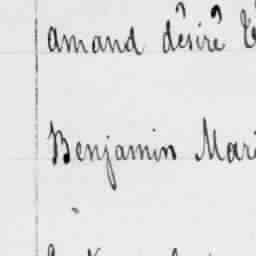 amand désiré
Benjamin Mari